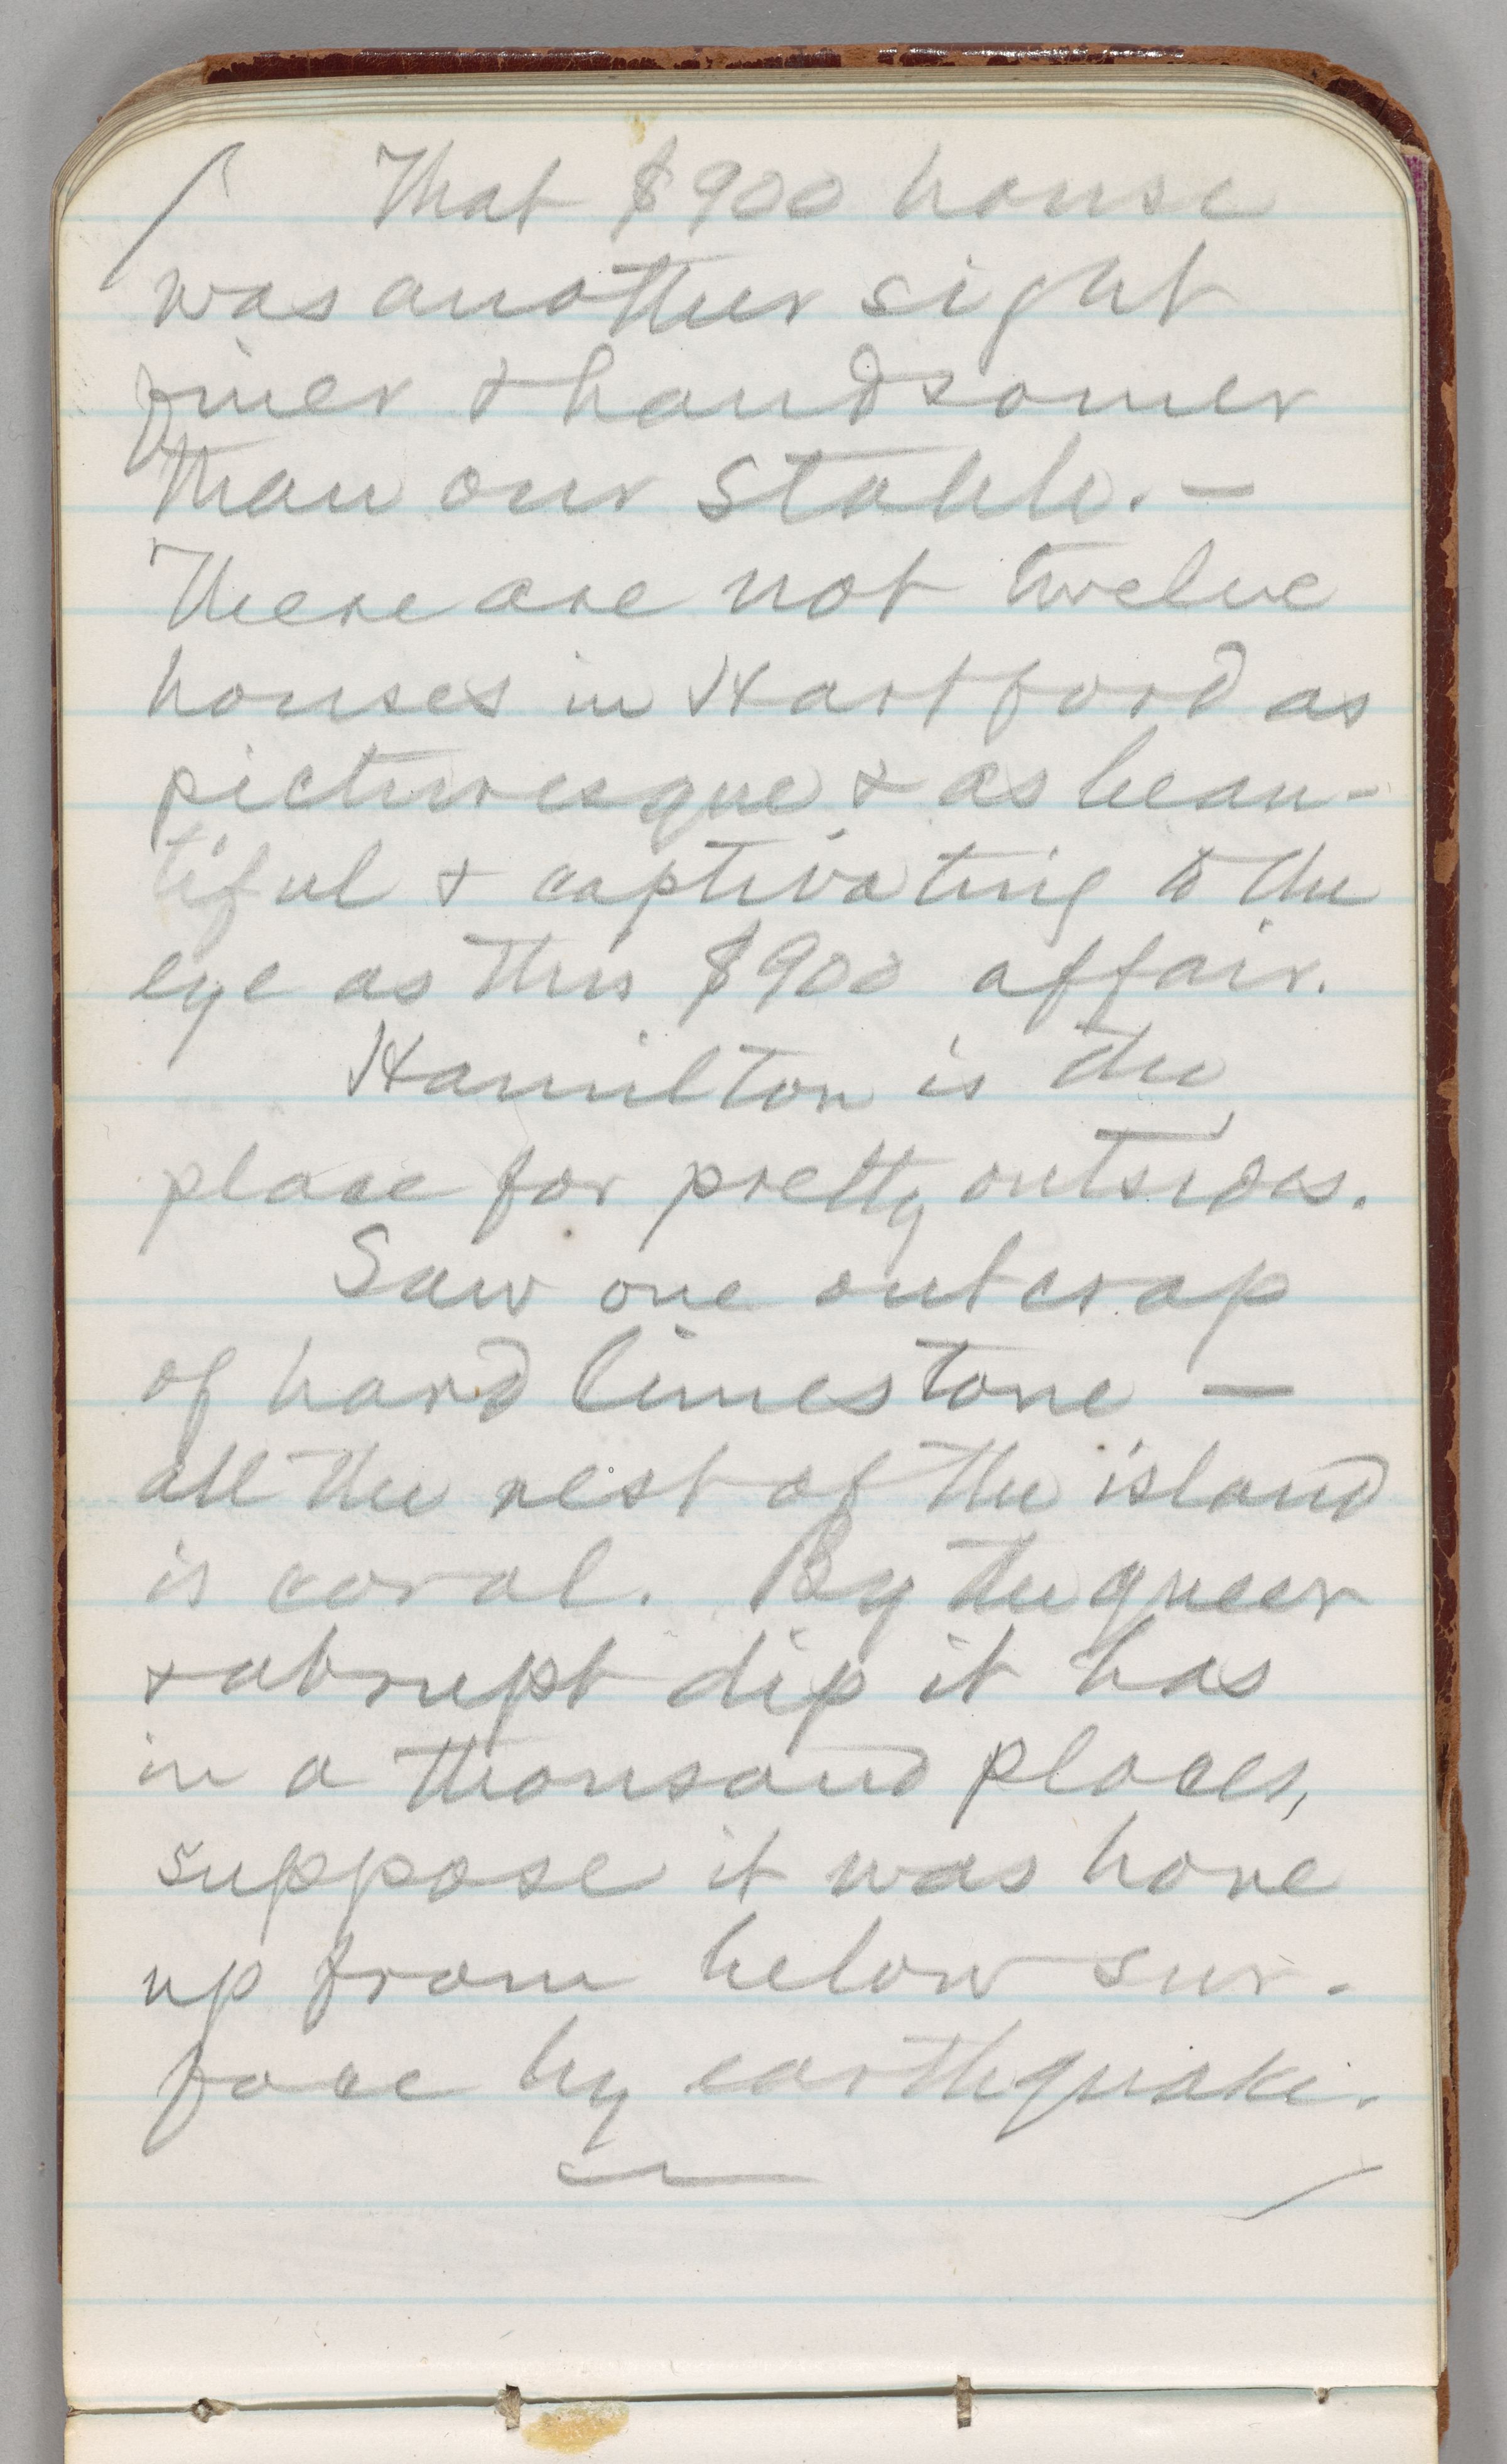 That $900 house
was another sight
finer & handsomer
than our stable. —
There are not twelve
houses in Hartford as
picturesque & as beau-
tiful & captivating to the
eye as this $900 affair.
Hamilton is the
place for pretty outsides.
Saw one outcrop
of hard limestone —
all the rest of the island
is coral. By the queer
& abrupt dip it has
in a thousand places,
suppose it was hove
up from below sur-
face by earthquake.